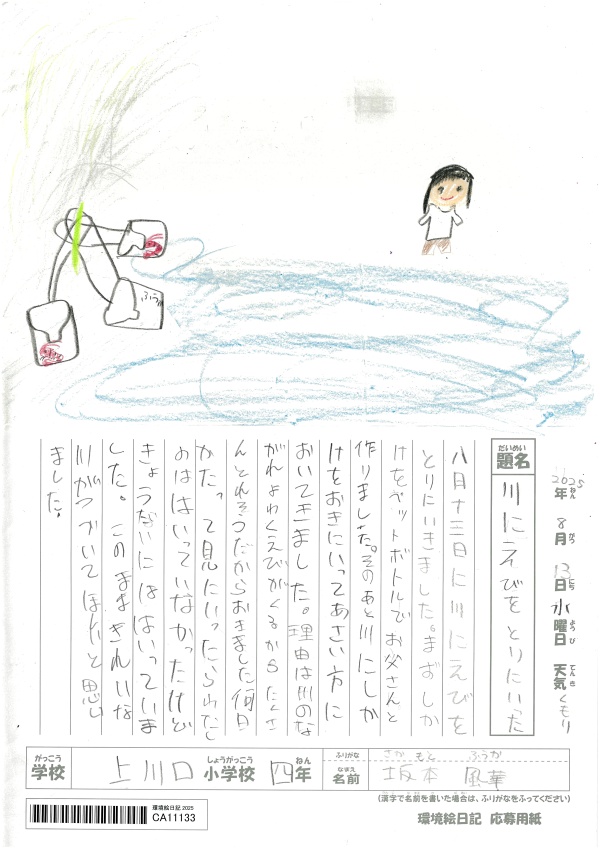 ふう
2025年 8月 13日 水曜日 天気 くもり
題名 川にえびをとりにいった
八月十三日に川にえびを
とりにいきました。まずしか
けをペットボトルでお父さんと
作りました。そのあと川にしか
けをおきにいってあさい方に
おいてきました。理由は川のな
がれよわくえびがくるからたくさ
んとれそうだからおきました何日
かたって見にいったらわたし
のはいっていなかったけど
きょうだいにははいっていま
した。このままきれいな
川がつづいてほしいと思い
ました。
がっこう しょうがっこう ねん ふりがな さか もと ふうか
学校 上川口 小学校 四年 なまえ 名前 坂本 風華
(漢字で名前を書いた場合は、ふりがなをふってください)
環境絵日記 2025
CA11133
環境絵日記 応募用紙